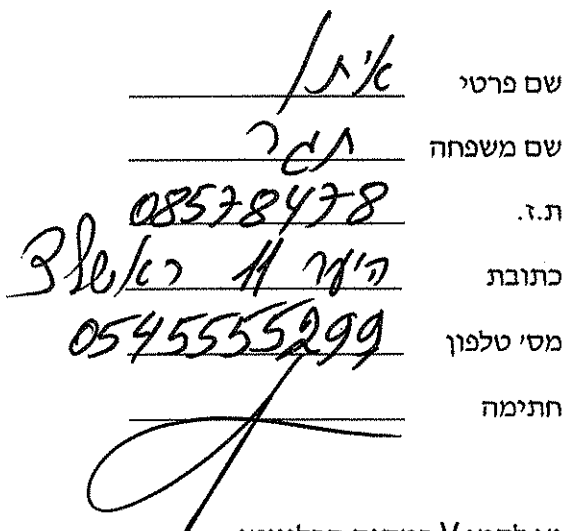 שם פרטי איתן
שם משפחה תגר
ת.ז. 08578478
כתובת היער 11 ראשל"צ
מס' טלפון 0545555299
חתימה